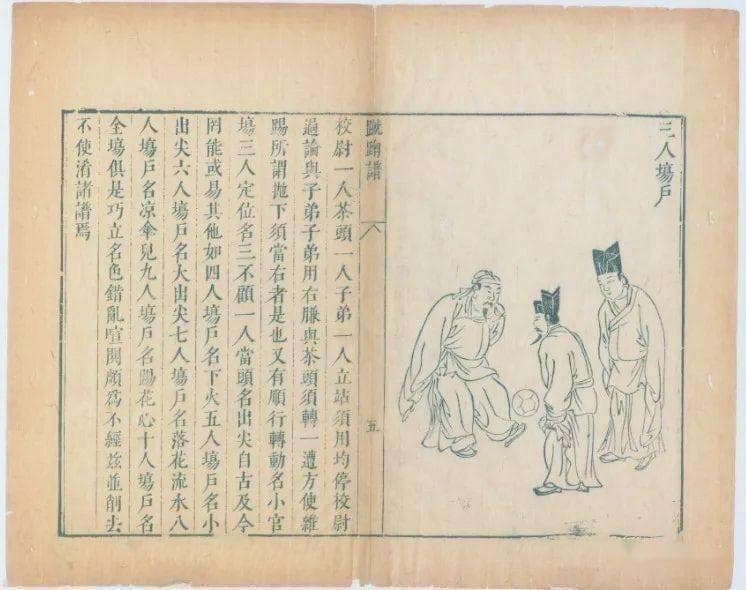 三人塲戶
蹴踘譜
五
校尉一人茶頭一人子弟一人立站須用均停校尉
過論與子弟子弟用右膁與茶頭須轉一遭方使雜
踢所謂拋下須當右者是也又有順行轉動名小官
塲三人定位名三不顧一人當頭名出尖自古及今
罔能或易其他如四人塲戶名下火五人塲戶名小
出尖六人塲戶名大出尖七人塲戶名落花流水八
人塲戶名凉傘兒九人塲戶名踢花心十人塲戶名
全塲俱是巧立名色錯亂喧鬨頗爲不經茲並削去
不使淆諸譜焉